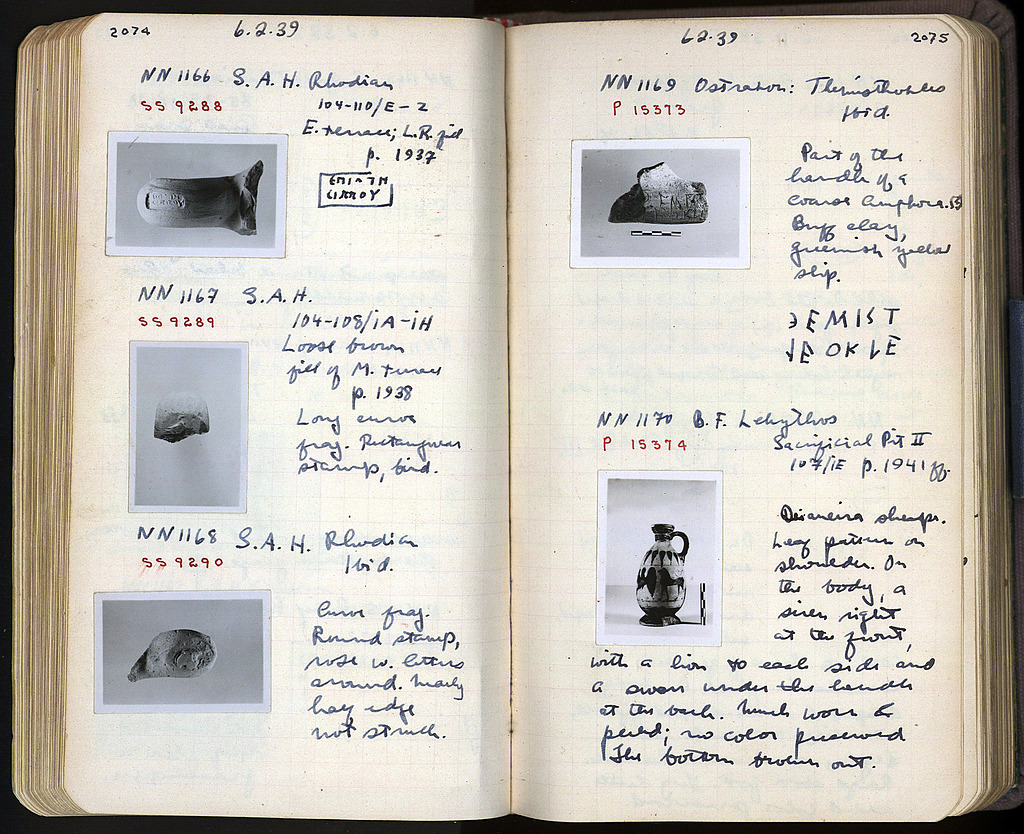 2074
6.2.39
NN 1166 S. A. H. Rhodian
SS 9288
104-110/E-2
E. terrace; L.R. fill
p. 1937
NN 1167 S. A. H.
SS 9289
104-108/ΙΑ-ΙΗ
Loose brown
fill of M. terrace
p. 1938
Long curve
frag. Rectangular
stamp, bird.
NN 1168 S. A. H. Rhodian
SS 9290
Ibid.
Curve frag.
Round stamp,
rose w. letters
around. Nearly
half edge
not struck.
2075
6.2.39
NN 1169 Ostrakon: Themisthokles
P 15373
Ibid.
Part of the
handle of a
coarse amphora.
Buff clay,
greenish yellow
slip.
ƎEMIST
OKLE
NN 1170 B. F. Lekythos
P 15374
Sacrificial Pit II
107/ΙΕ p. 1941 ff.
Deianeira shape.
Leaf pattern on
shoulder. On
the body, a
siren right
at the front,
with a lion to each side and
a swan under the handle
at the back. Much worn &
peeled; no color preserved
The bottom broken out.